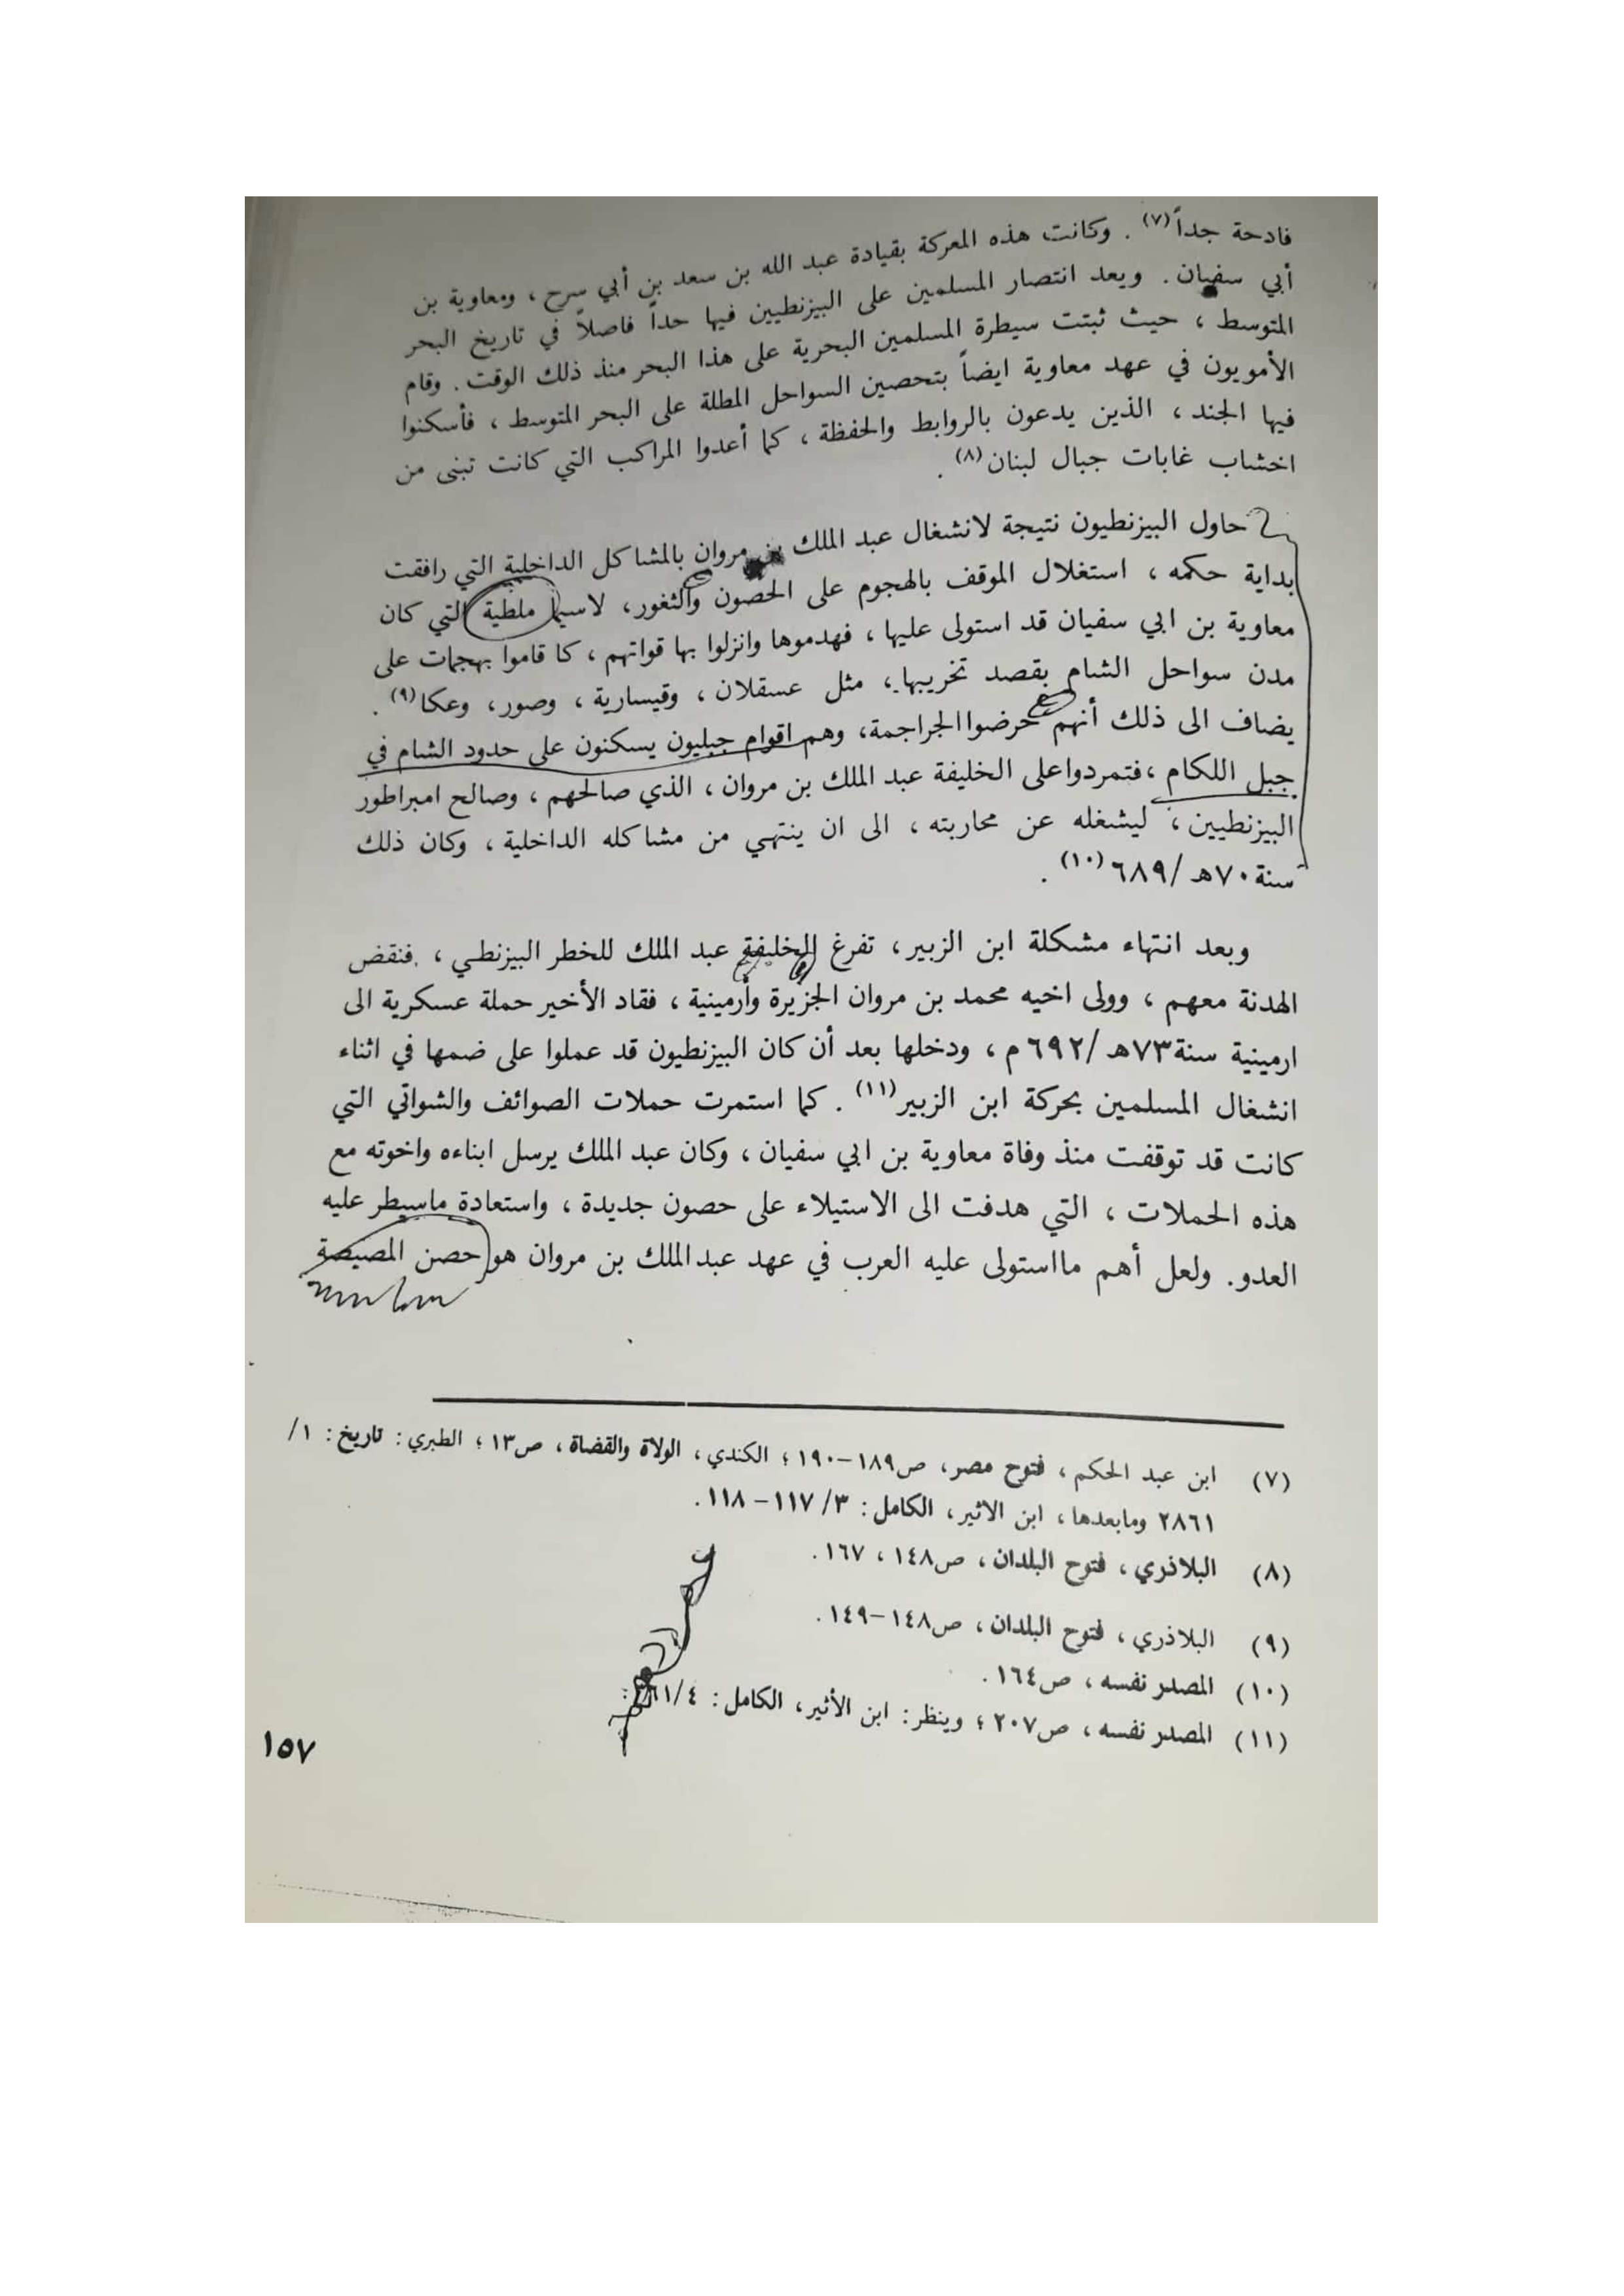 فادحة جداً(٧) . وكانت هذه المعركة بقيادة عبد الله بن سعد بن أبي سرح ، ومعاوية بن
أبي سفيان . ويعد انتصار المسلمين على البيزنطيين فيها حداً فاصلاً في تاريخ البحر
المتوسط ، حيث ثبتت سيطرة المسلمين البحرية على هذا البحر منذ ذلك الوقت . وقام
الأمويون في عهد معاوية ايضاً بتحصين السواحل المطلة على البحر المتوسط ، فأسكنوا
فيها الجند ، الذين يدعون بالروابط والحفظة ، كما أعدوا المراكب التي كانت تبنى من
اخشاب غابات جبال لبنان(٨) .
حاول البيزنطيون نتيجة لانشغال عبد الملك بن مروان بالمشاكل الداخلية التي رافقت
بداية حكمه ، استغلال الموقف بالهجوم على الحصون والثغور، لاسيما ملطية التي كان
معاوية بن ابي سفيان قد استولى عليها ، فهدموها وانزلوا بها قواتهم ، كما قاموا بهجمات على
مدن سواحل الشام بقصد تخريبها ، مثل عسقلان ، وقيسارية ، وصور، وعكا(٩) .
يضاف الى ذلك أنهم حرضوا الجراجمة، وهم اقوام جبليون يسكنون على حدود الشام في
جبل اللكام ، فتمردوا على الخليفة عبد الملك بن مروان ، الذي صالحهم ، وصالح امبراطور
البيزنطيين ، ليشغله عن محاربته ، الى ان ينتهي من مشاكله الداخلية ، وكان ذلك
سنة ٧٠هـ /٦٨٩(١٠) .
وبعد انتهاء مشكلة ابن الزبير، تفرغ الخليفة عبد الملك للخطر البيزنطي ، فنقض
الهدنة معهم ، وولى اخيه محمد بن مروان الجزيرة وأرمينية ، فقاد الأخير حملة عسكرية الى
ارمينية سنة ٧٣هـ /٦٩٢م ، ودخلها بعد أن كان البيزنطيون قد عملوا على ضمها في اثناء
انشغال المسلمين بحركة ابن الزبير(١١) . كما استمرت حملات الصوائف والشواتي التي
كانت قد توقفت منذ وفاة معاوية بن ابي سفيان ، وكان عبد الملك يرسل ابناءه واخوته مع
هذه الحملات ، التي هدفت الى الاستيلاء على حصون جديدة ، واستعادة ماسيطر عليه
العدو. ولعل أهم مااستولى عليه العرب في عهد عبدالملك بن مروان هو حصن المصيصة
(٧) ابن عبد الحكم ، فتوح مصر، ص١٨٩-١٩٠ ؛ الكندي ، الولاة والقضاة ، ص١٣ ؛ الطبري : تاريخ : ١/
٢٨٦١ ومابعدها ، ابن الاثير، الكامل : ٣/ ١١٧ - ١١٨ .
(٨) البلاذري ، فتوح البلدان ، ص١٤٨ ، ١٦٧ .
(٩) البلاذري ، فتوح البلدان ، ص١٤٨-١٤٩ .
(١٠) المصدر نفسه ، ص١٦٤ .
(١١) المصدر نفسه ، ص٢٠٧ ؛ وينظر : ابن الأثير، الكامل : ٤/
١٥٧